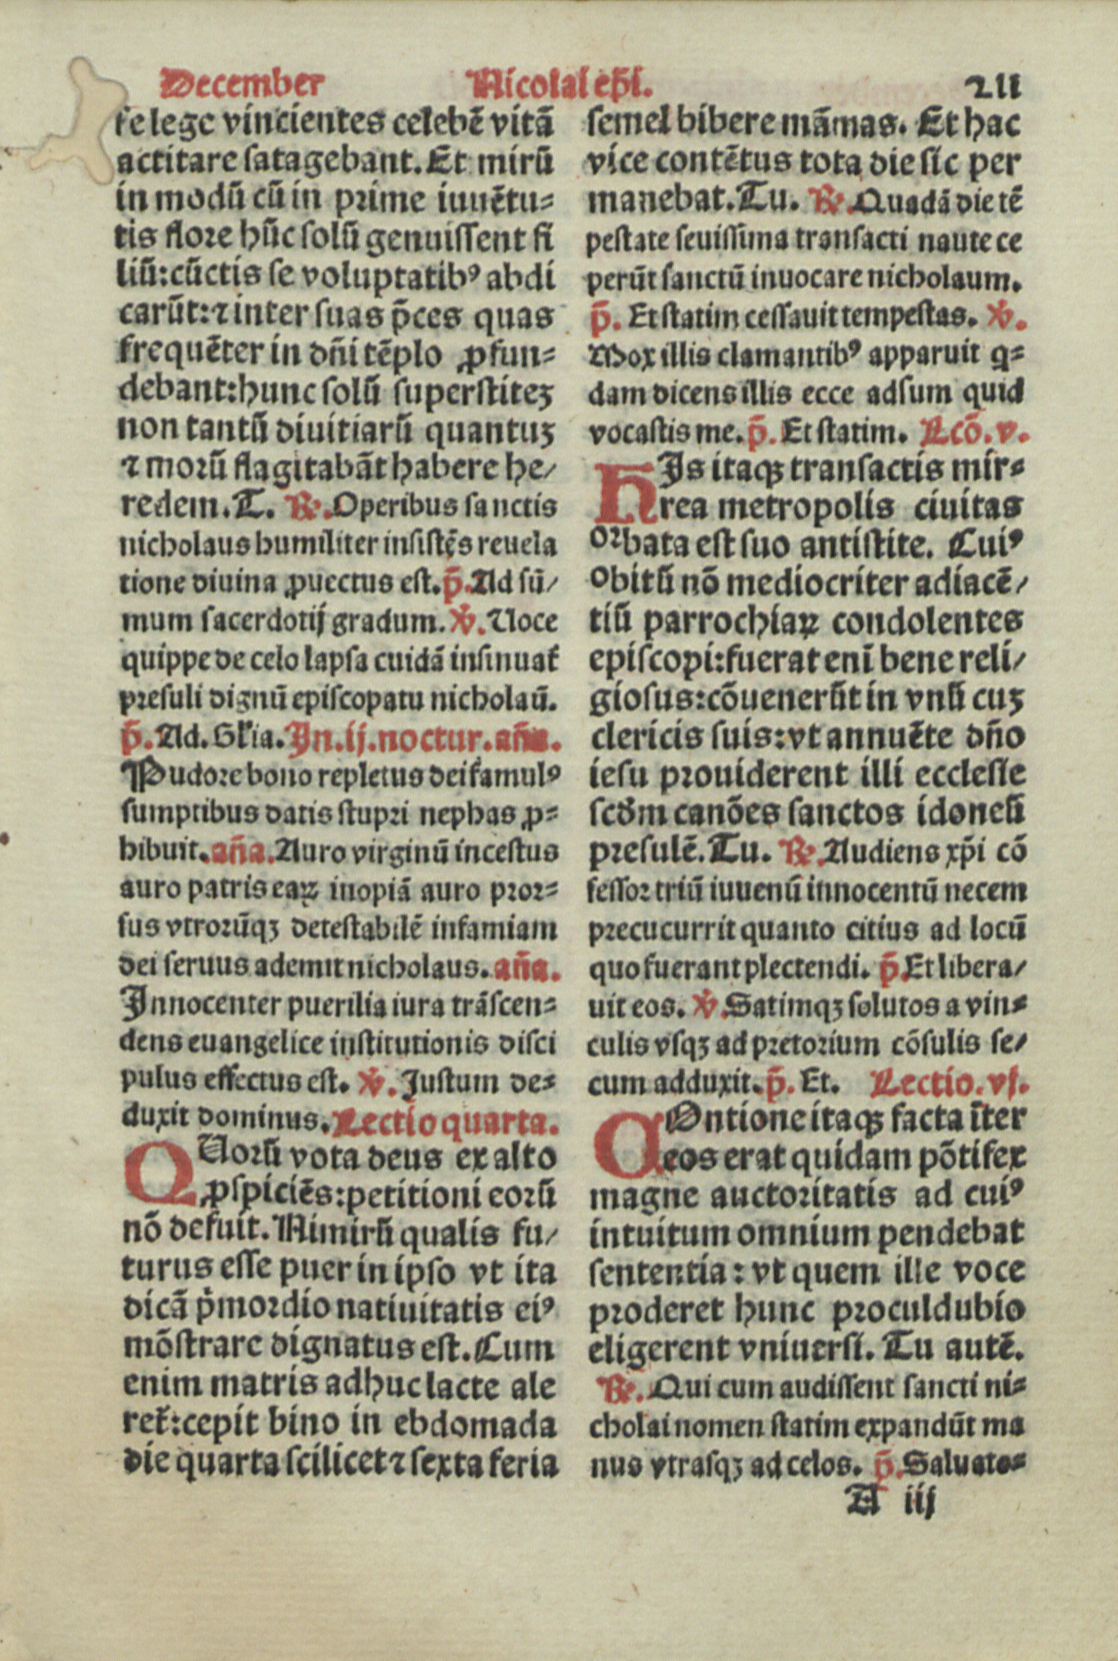 December Nicolai ep̄i. 211
re lege vincientes celebē vitā
actitare satagebant. Et mirū
in modū cū in prime iuuētu⸗
tis flore hūc solū genuissent fi
liū: cūctis se voluptatibꝰ abdi
carūt: ⁊ inter suas p̄ces quas
frequēter in dn̄i tēplo ꝓfun⸗
debant: hunc solū superstiteꝫ
non tantū diuitiarū quantuꝫ
⁊ morū flagitabāt habere he/
redem. T. ℟. Operibus sanctis
nicholaus humiliter insistēs reuela
tione diuina ꝓuectus est. p̄. Ad sū/
mum sacerdotij gradum. ℣. Uoce
quippe de celo lapsa cuidā insinuat̄
presuli dignū episcopatu nicholaū.
p̄. Ad. Gl̄ia. In. ij. noctur. an̄a.
Pudore bono repletus dei famulꝰ
sumptibus datis stupri nephas ꝓ⸗
hibuit. an̄a. Auro virginū incestus
auro patris eaꝝ inopiā auro pror⸗
sus vtrorūqꝫ detestabilē infamiam
dei seruus ademit nicholaus. an̄a.
Innocenter puerilia iura trāscen⸗
dens euangelice institutionis disci
pulus effectus est. ℣. Justum de⸗
duxit dominus. Lectio quarta.
QUorū vota deus ex alto
ꝓspiciēs: petitioni eorū
nō defuit. Nimirū qualis fu/
turus esse puer in ipso vt ita
dicā p̄mordio natiuitatis eiꝰ
mōstrare dignatus est. Cum
enim matris adhuc lacte ale
ret̄: cepit bino in ebdomada
die quarta scilicet ⁊ sexta feria
semel bibere māmas. Et hac
vice contētus tota die sic per
manebat. Tu. ℟. Quadā die tē
pestate seuissima transacti naute ce
perūt sanctū inuocare nicholaum.
p̄. Et statim cessauit tempestas. ℣.
Mox illis clamantibꝰ apparuit q⸗
dam dicens illis ecce adsum quid
vocastis me. p̄. Et statim. Lcō. v.
HIs itaqꝫ transactis mir⸗
rea metropolis ciuitas
orbata est suo antistite. Cuiꝰ
obitū nō mediocriter adiacē/
tiū parrochiaꝝ condolentes
episcopi: fuerat eni̅ bene reli/
giosus: cōuenerūt in vnū cuꝫ
clericis suis: vt annuēte dn̄o
iesu prouiderent illi ecclesie
scd̄m canōes sanctos idoneū
presulē. Tu. ℟. Audiens xp̄i cō
fessor triū iuuenū innocentū necem
precucurrit quanto citius ad locū
quo fuerant plectendi. p̄. Et libera/
uit eos. ℣. Satimqꝫ solutos a vin⸗
culis vsqꝫ ad pretorium cōsulis se/
cum adduxit. p̄. Et. Lectio. vj.
COntione itaqꝫ facta i̅ter
eos erat quidam pōtifex
magne auctoritatis ad cuiꝰ
intuitum omnium pendebat
sententia: vt quem ille voce
proderet hunc proculdubio
eligerent vniuersi. Tu autē.
℟. Qui cum audissent sancti ni⸗
cholai nomen statim expandūt ma
nus vtrasqꝫ ad celos. p̄. Saluato⸗
A iij